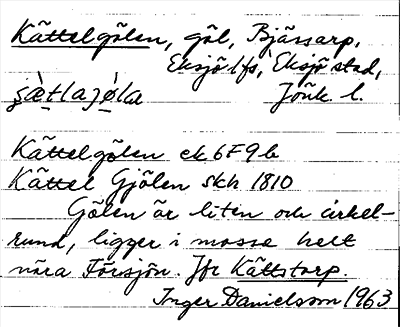 Kättelgölen, göl, Bjässarp,
Eksjö lfs, Eksjö stad,
Jönk. l.
Kättelgölen ek 6F9b
Kättel Gjölen skh 1810
Gölen är liten och cirkel-
rund, ligger i mosse helt
nära Försjön. Jfr Kättstorp.
Inger Danielsson 1963